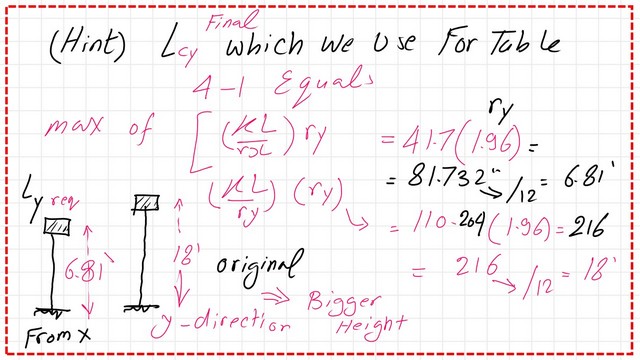 Final
(Hint) Lcy which we Use For Table
4-1 Equals
max of [(KL/rx) ry = 41.7(1.96) =
ry
= 81.732" → /12 = 6.81'
(KL/ry) (ry) → = 110.204(1.96) = 216
= 216 → /12 = 18'
Ly req
6.81'
From x
18'
original
y-direction ⇒ Bigger
Height